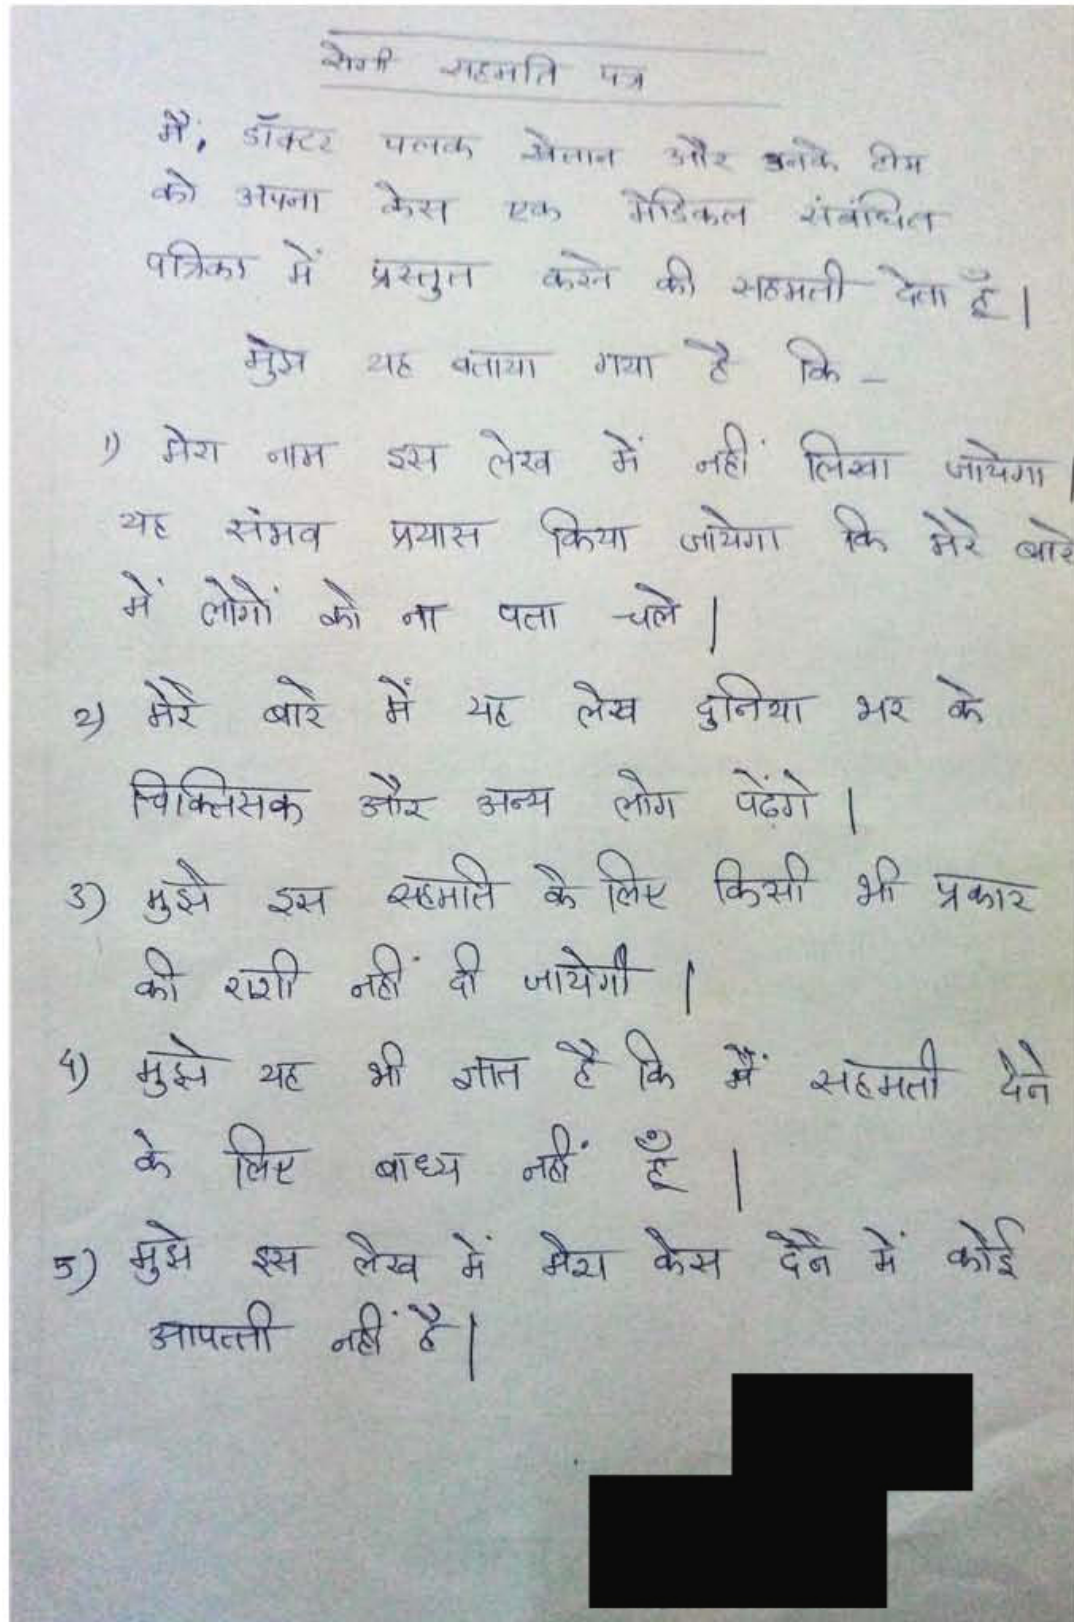 रोगी सहमति पत्र
मैं, डॉक्टर पलक खेतान और उनके टीम
को अपना केस एक मेडिकल संबंधित
पत्रिका में प्रस्तुत करने की सहमती देता हूँ |
मुझे यह बताया गया है कि –
1) मेरा नाम इस लेख में नहीं लिखा जायेगा |
यह संभव प्रयास किया जायेगा कि मेरे बारे
में लोगों को ना पता चले |
2) मेरे बारे में यह लेख दुनिया भर के
चिक्तिसक और अन्य लोग पढ़ेंगे |
3) मुझे इस सहमति के लिए किसी भी प्रकार
की राशी नहीं दी जायेगी |
4) मुझे यह भी ज्ञात है कि मैं सहमती देने
के लिए बाध्य नहीं हूँ |
5) मुझे इस लेख में मेरा केस देने में कोई
आपत्ती नहीं है |